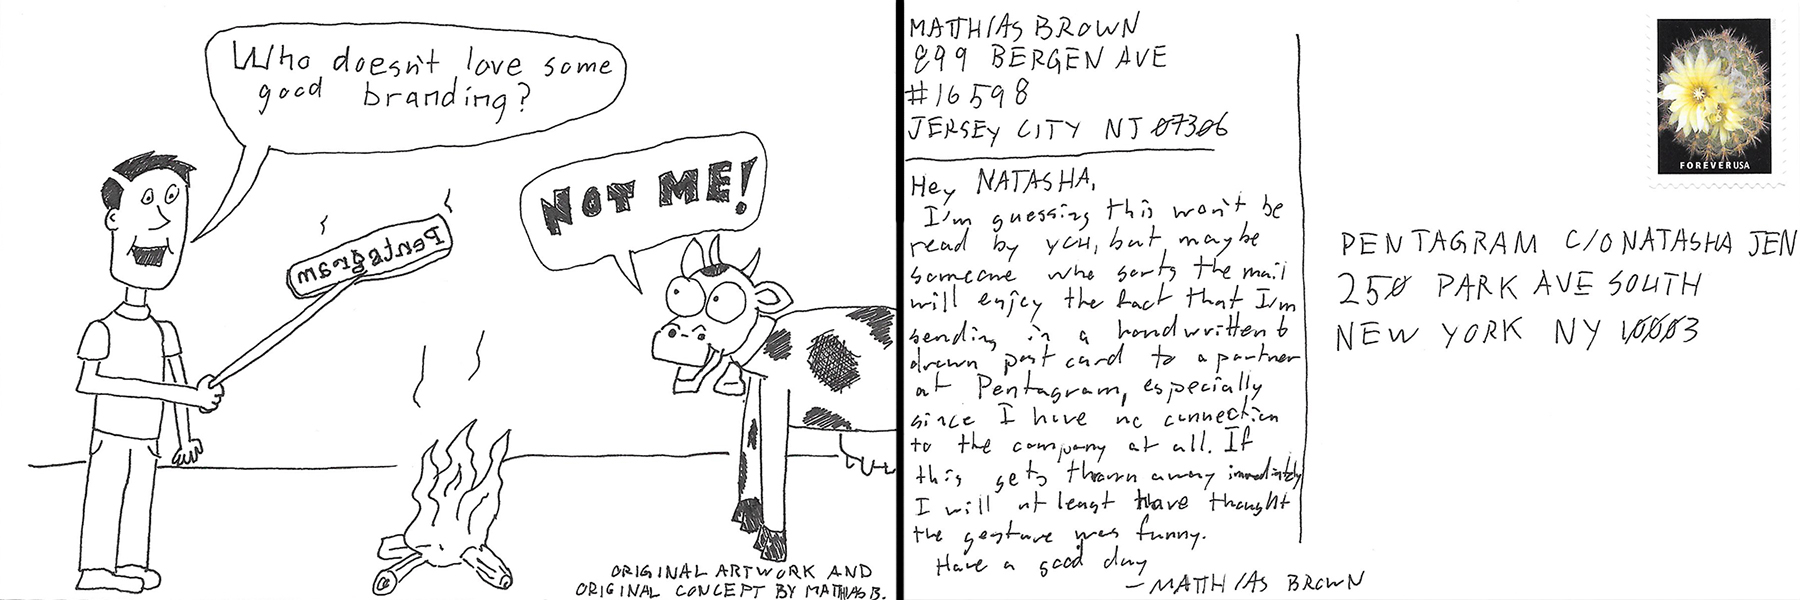 Who doesn't love some
good branding?
NOT ME!
Pentagram
ORIGINAL ARTWORK AND
ORIGINAL CONCEPT BY MATTHIAS B.
MATTHIAS BROWN
899 BERGEN AVE
#16598
JERSEY CITY NJ 07306
Hey NATASHA,
I'm guessing this won't be
read by you, but maybe
someone who sorts the mail
will enjoy the fact that I'm
sending in a handwritten &
drawn post card to a partner
at Pentagram, especially
since I have no connection
to the company at all. If
this gets thrown away immediately
I will at least have thought
the gesture was funny.
Have a good day
- MATTHIAS BROWN
FOREVER USA
PENTAGRAM C/O NATASHA JEN
250 PARK AVE SOUTH
NEW YORK NY 10003